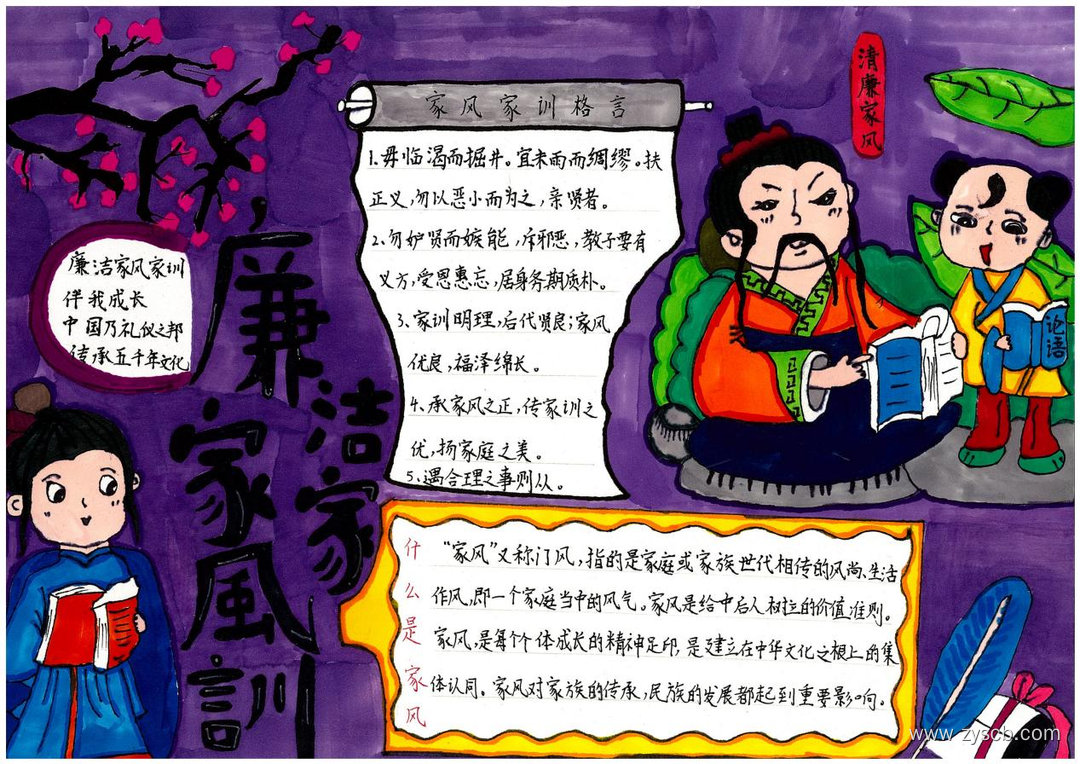 廉洁家风家訓
清廉家风
家风家训格言
1.毋临渴而掘井。宜未雨而绸缪。扶
正义,勿以恶小而为之,亲贤者。
2.勿妒贤而嫉能,斥邪恶,教子要有
义方,受恩惠忘,居身务期质朴。
3、家训明理,后代贤良;家风
优良,福泽绵长。
4、承家风之正,传家训之
优,扬家庭之美。
5、遇合理之事则从。
廉洁家风家训
伴我成长
中国乃礼仪之邦
传承五千年文化
论语
什么是家风
“家风”又称门风,指的是家庭或家族世代相传的风尚、生活
作风,即一个家庭当中的风气。家风是给中后人树立的价值准则。
家风,是每个个体成长的精神足印,是建立在中华文化之根上的集
体认同。家风对家族的传承,民族的发展都起到重要影响。
www.zyscb.com